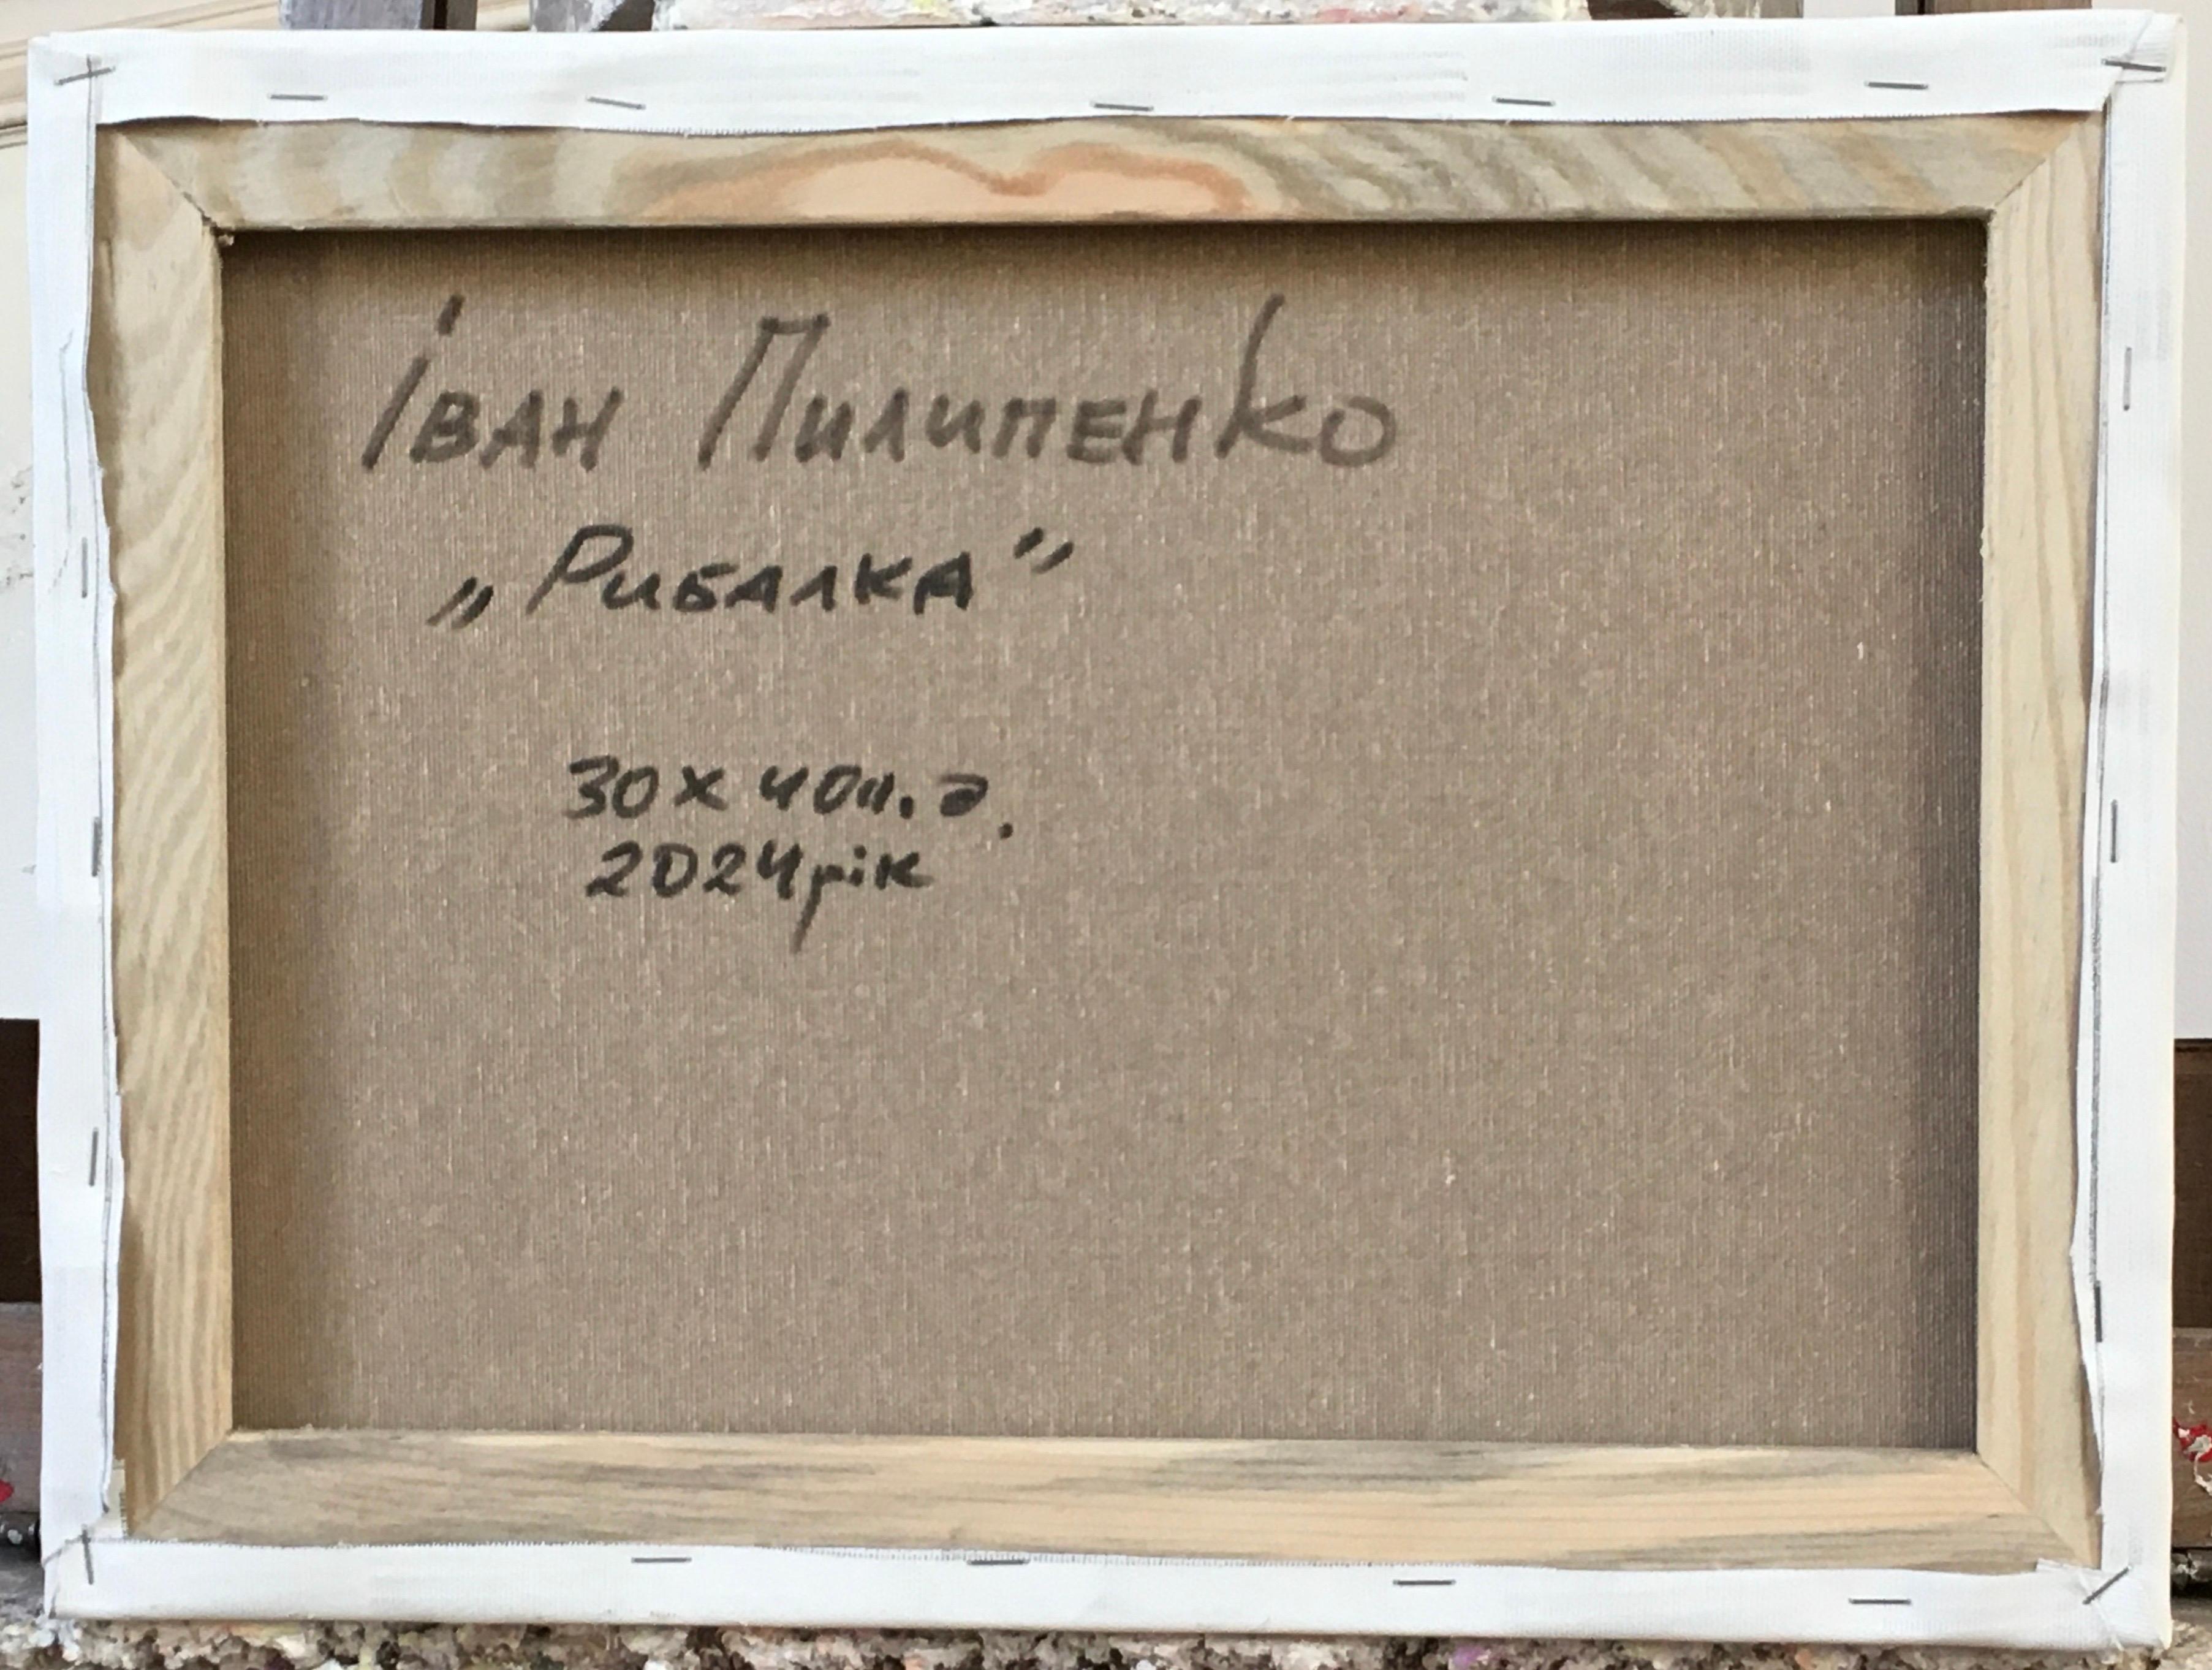 Іван Пилипенко
„Рибалка"
30х40п.о.
2024рік